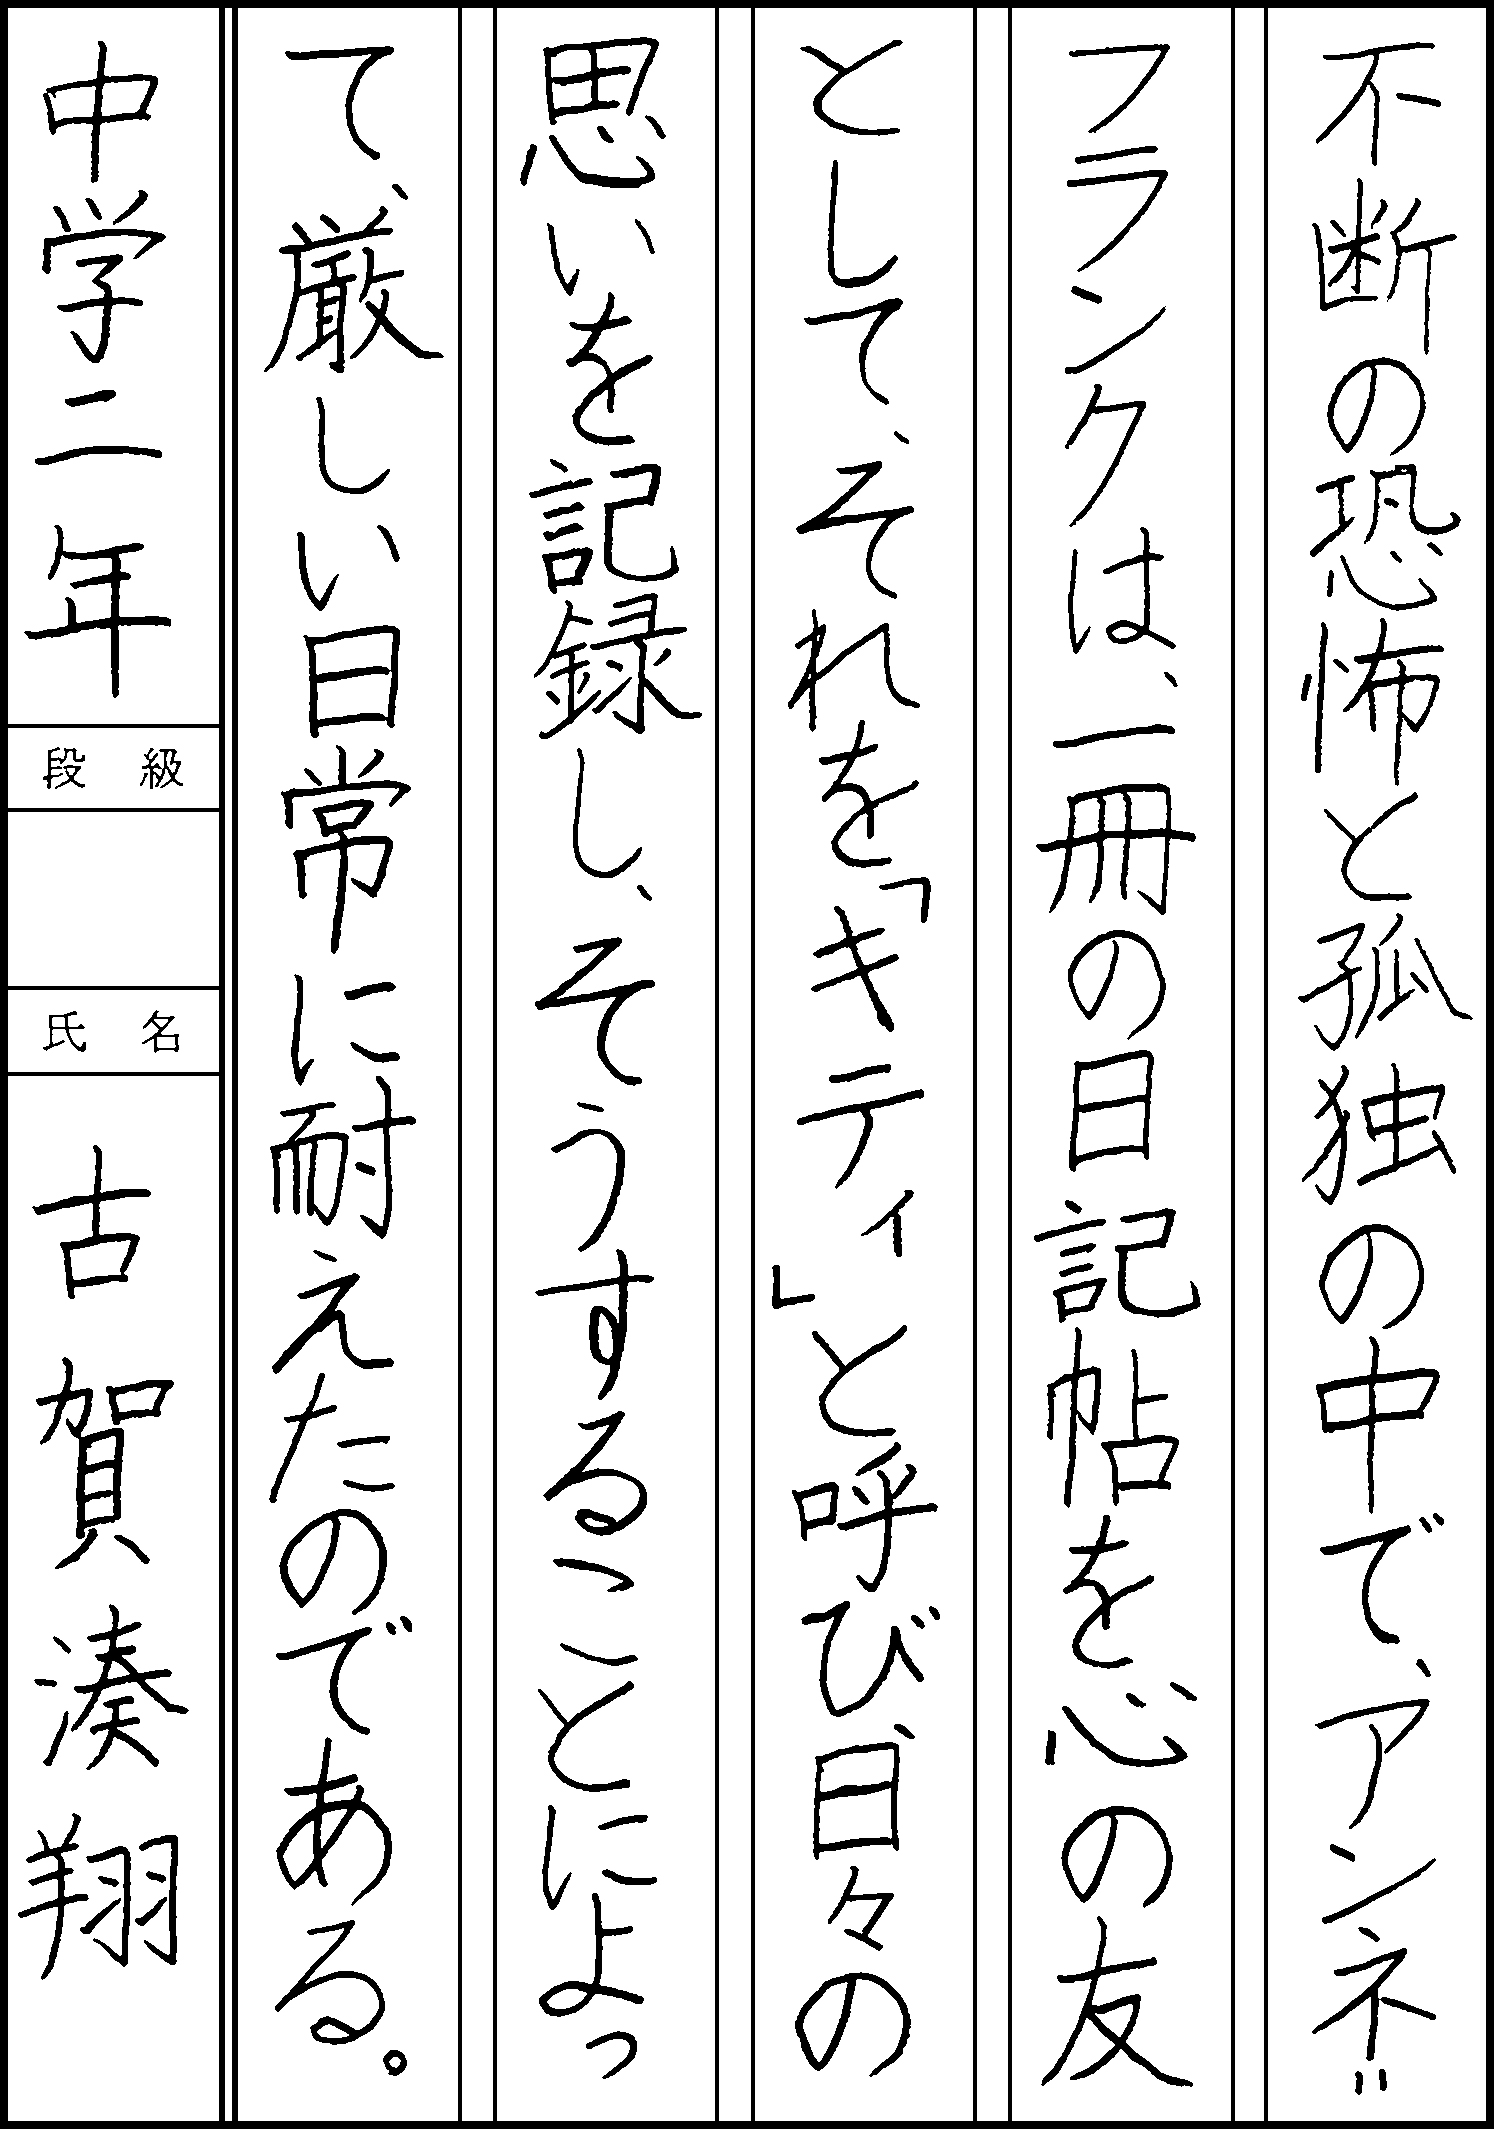 不断の恐怖と孤独の中で、アンネ＝
フランクは、一冊の日記帖を心の友
として、それを「キティ」と呼び、日々の
思いを記録し、そうすることによっ
て、厳しい日常に耐えたのである。
中学二年
段級
氏名
古賀湊翔